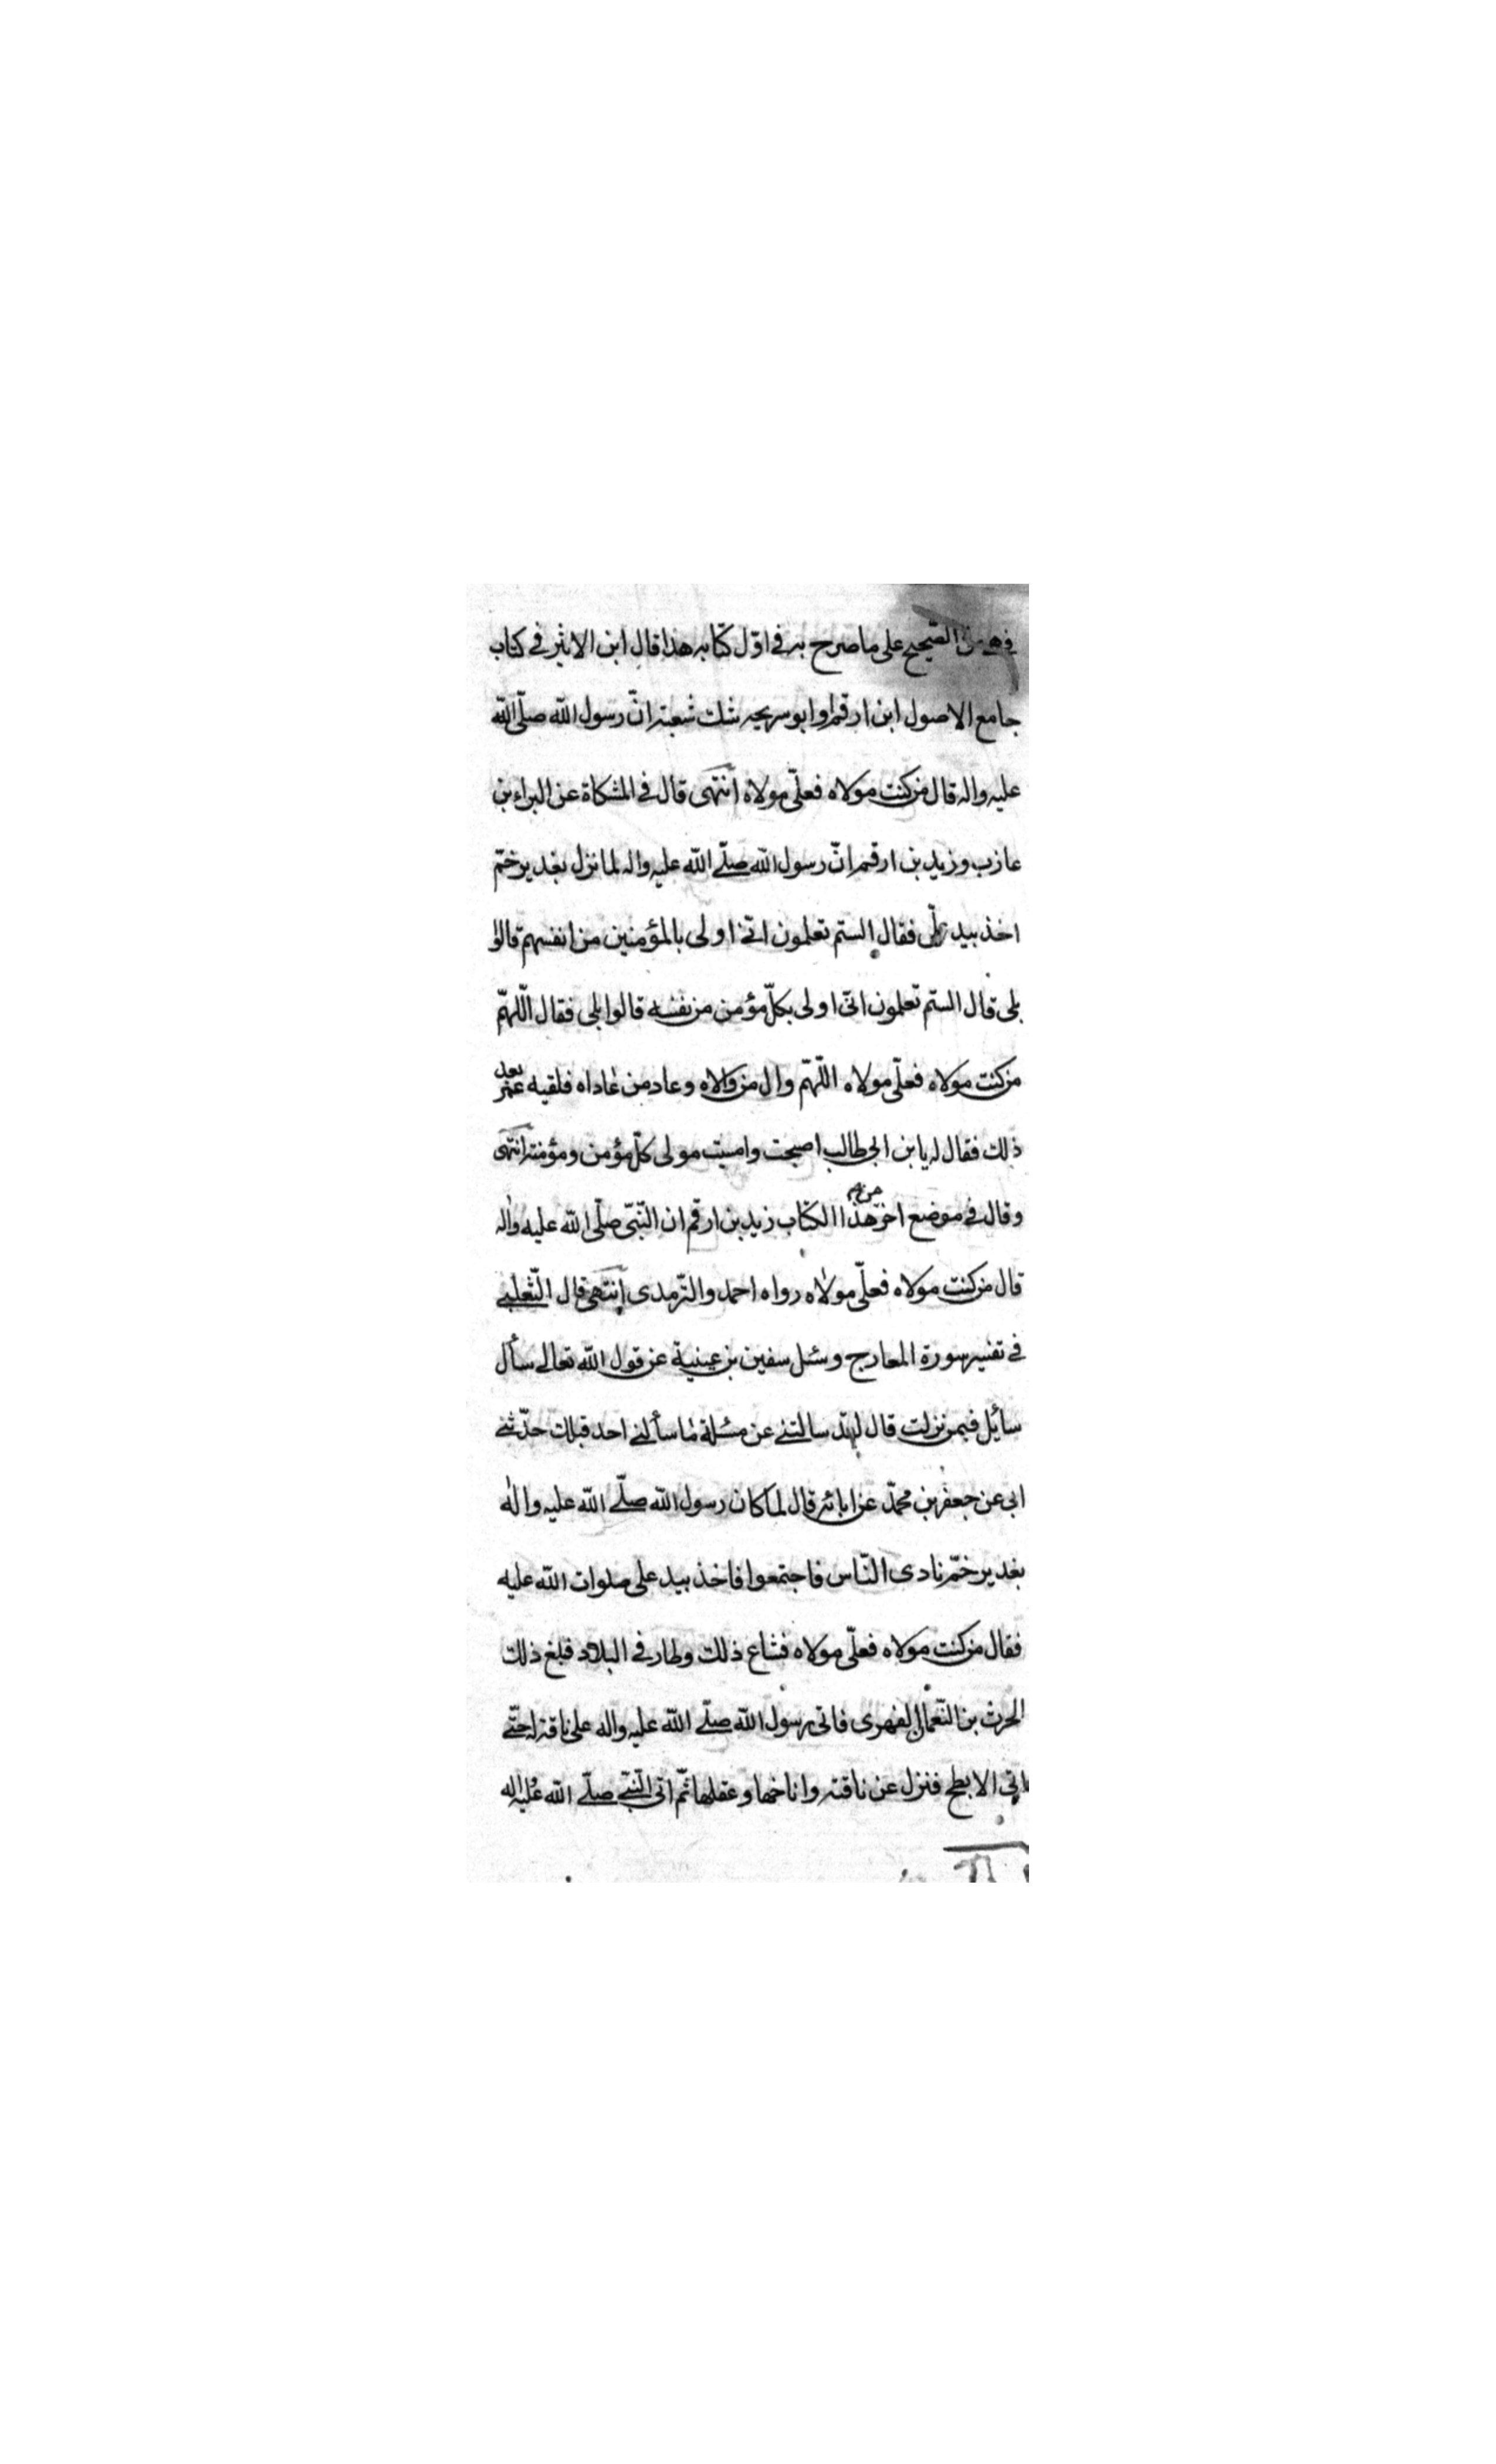 فهو من الصّحيح على ما صرح به فى اوّل كتابه هذا قال ابن الاثير فى كتاب
جامع الاصول ابن ارقم او ابو سريحه شك شعبة انّ رسول الله صلّى الله
عليه واله قال من كنت مولاه فعلىّ مولاه انتهى قال فى المشكاة عن البراء بن
عازب وزيد بن ارقم انّ رسول الله صلّى الله عليه واله لما نزل بغدير خمّ
اخذ بيد علىّ فقال الستم تعلمون انّى اولى بالمؤمنين من انفسهم قالوا
بلى قال الستم تعلمون انّى اولى بكلّ مؤمن من نفسه قالوا بلى فقال اللّهمّ
من كنت مولاه فعلىّ مولاه اللّهمّ وال من والاه وعاد من عاداه فلقيه عمر بعد
ذلك فقال له يابن ابى طالب اصبحت وامسيت مولى كلّ مؤمن ومؤمنة انتهى
وقال فى موضع اخر من هذا الكتاب زيد بن ارقم ان النّبىّ صلّى الله عليه واله
قال من كنت مولاه فعلىّ مولاه رواه احمد والتّرمدى انتهى قال الثّعلبى
فى تفسير سورة المعارج وسئل سفين بن عينية عن قول الله تعالى سأل
سائل فيمن نزلت قال لقد سالتنى عن مسئلة ما سألنى احد قبلك حدّثنى
ابى عن جعفر بن محمّد عن ابائه قال لما كان رسول الله صلّى الله عليه واله
بغدير خمّ نادى النّاس فاجتمعوا فاخذ بيد على صلوات الله عليه
فقال من كنت مولاه فعلىّ مولاه فشاع ذلك وطار فى البلاد فبلغ ذلك
الحرث بن النّعمان الفهرى فاتى رسول الله صلّى الله عليه واله على ناقة له حتّى
اتى الابطح فنزل عن ناقته واناخها وعقلها ثمّ اتى النّبىّ صلّى الله عليه واله